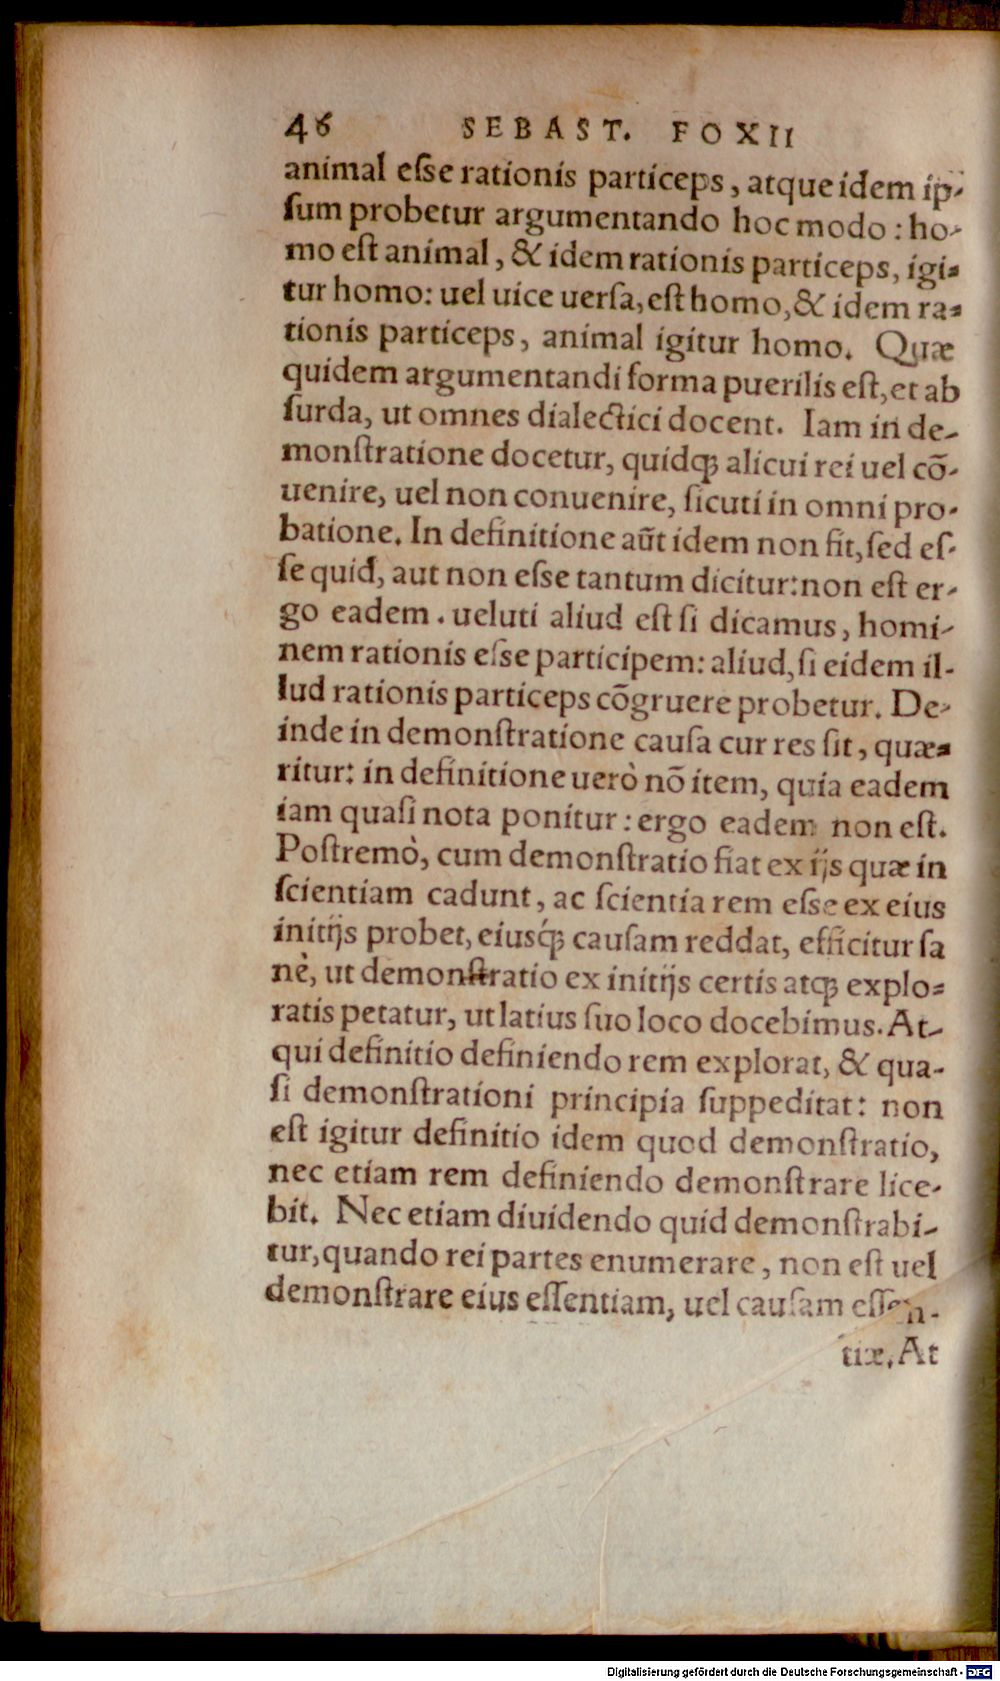 46 SEBAST. FOXII
animal eſse rationis particeps, atque idem ip-
ſum probetur argumentando hoc modo : ho-
mo eſt animal, & idem rationis particeps, igi-
tur homo: uel uice uerſa, eſt homo, & idem ra-
tionis particeps, animal igitur homo. Quæ
quidem argumentandi forma puerilis eſt, et ab
ſurda, ut omnes dialectici docent. Iam in de-
monſtratione docetur, quidq́ꝫ alicui rei uel cō-
uenire, uel non conuenire, ſicuti in omni pro-
batione. In definitione aūt idem non fit, ſed eſ-
ſe quid, aut non eſse tantum dicitur: non eſt er-
go eadem. ueluti aliud eſt ſi dicamus, homi-
nem rationis eſse participem: aliud, ſi eidem il-
lud rationis particeps cōgruere probetur. De-
inde in demonſtratione cauſa cur res ſit, quæ-
ritur: in definitione uerò nō item, quia eadem
iam quaſi nota ponitur : ergo eadem non eſt.
Poſtremò, cum demonſtratio fiat ex ijs quæ in
ſcientiam cadunt, ac ſcientia rem eſse ex eius
initijs probet, eiusq́ꝫ cauſam reddat, efficitur ſa
nè, ut demonſtratio ex initijs certis atqꝫ explo-
ratis petatur, ut latius ſuo loco docebimus. At-
qui definitio definiendo rem explorat, & qua-
ſi demonſtrationi principia ſuppeditat: non
eſt igitur definitio idem quod demonſtratio,
nec etiam rem definiendo demonſtrare lice-
bit. Nec etiam diuidendo quid demonſtrabi-
tur, quando rei partes enumerare, non eſt uel
demonſtrare eius eſſentiam, uel cauſam eſſen-
tiæ. At
Digitalisierung gefördert durch die Deutsche Forschungsgemeinschaft - DFG